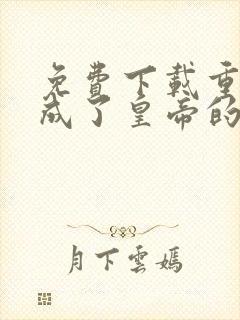 免費下載重
成了皇帝的
月下雲嫣